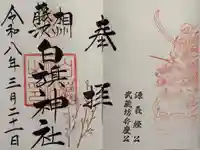 奉拝
相州
藤沢
白旗神社
令和八年三月二十二日
源義経公
武蔵坊弁慶公